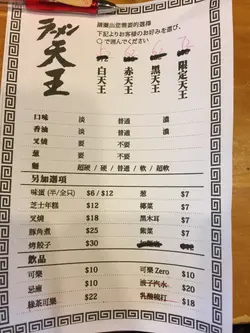 ラーメン
天王
請圈出您需要的選擇
下記よりお客様のお好みを選び、
○で囲んでください
白天王
赤天王
黑天王
限定天王
口味 淡 普通 濃
香油 淡 普通 濃
叉燒 要 不要
蔥 要 不要
麵 超硬 / 硬 / 普通 / 軟 / 超軟
另加選項
味蛋 (半/全只) $6 / $12 蔥 $7
芝士年糕 $12 椰菜 $7
叉燒 $18 黑木耳 $7
豚角煮 $25 紫菜 $7
烤餃子 $30
飲品
可樂 $10 可樂 Zero $10
忌廉 $10 波子汽水 $20
綠茶可樂 $22 乳酸梳打 $18